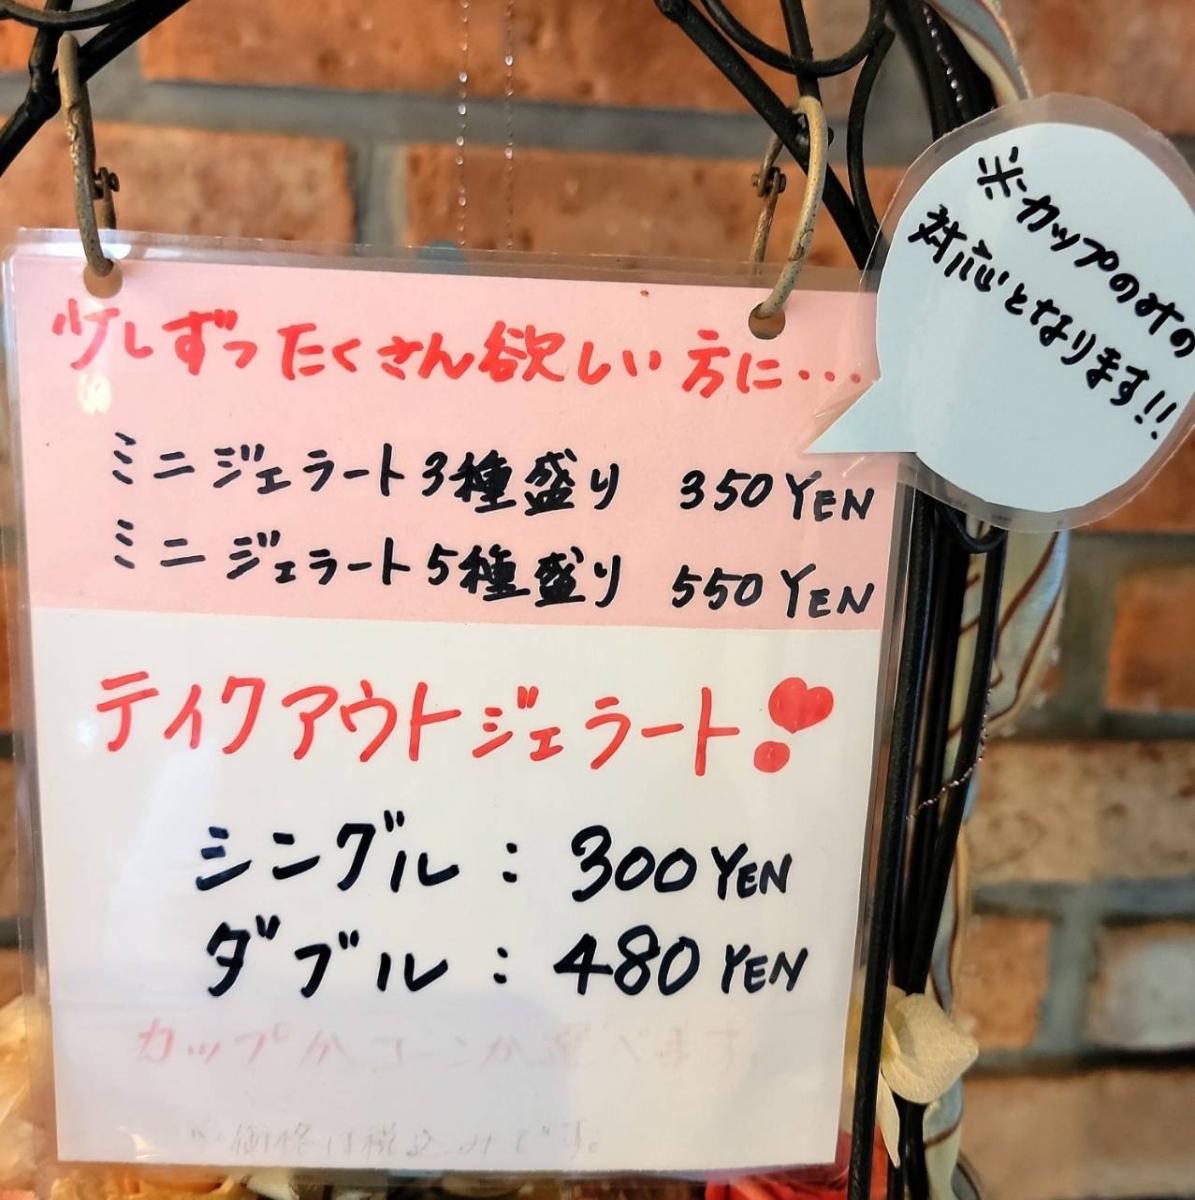 少しずつたくさん欲しい方に...
ミニジェラート3種盛り 350YEN
ミニジェラート5種盛り 550YEN
※カップのみの
対応となります!!
ティクアウトジェラート
シングル:300YEN
ダブル:480YEN
カップかコーンか選べます
※価格は税込みです。